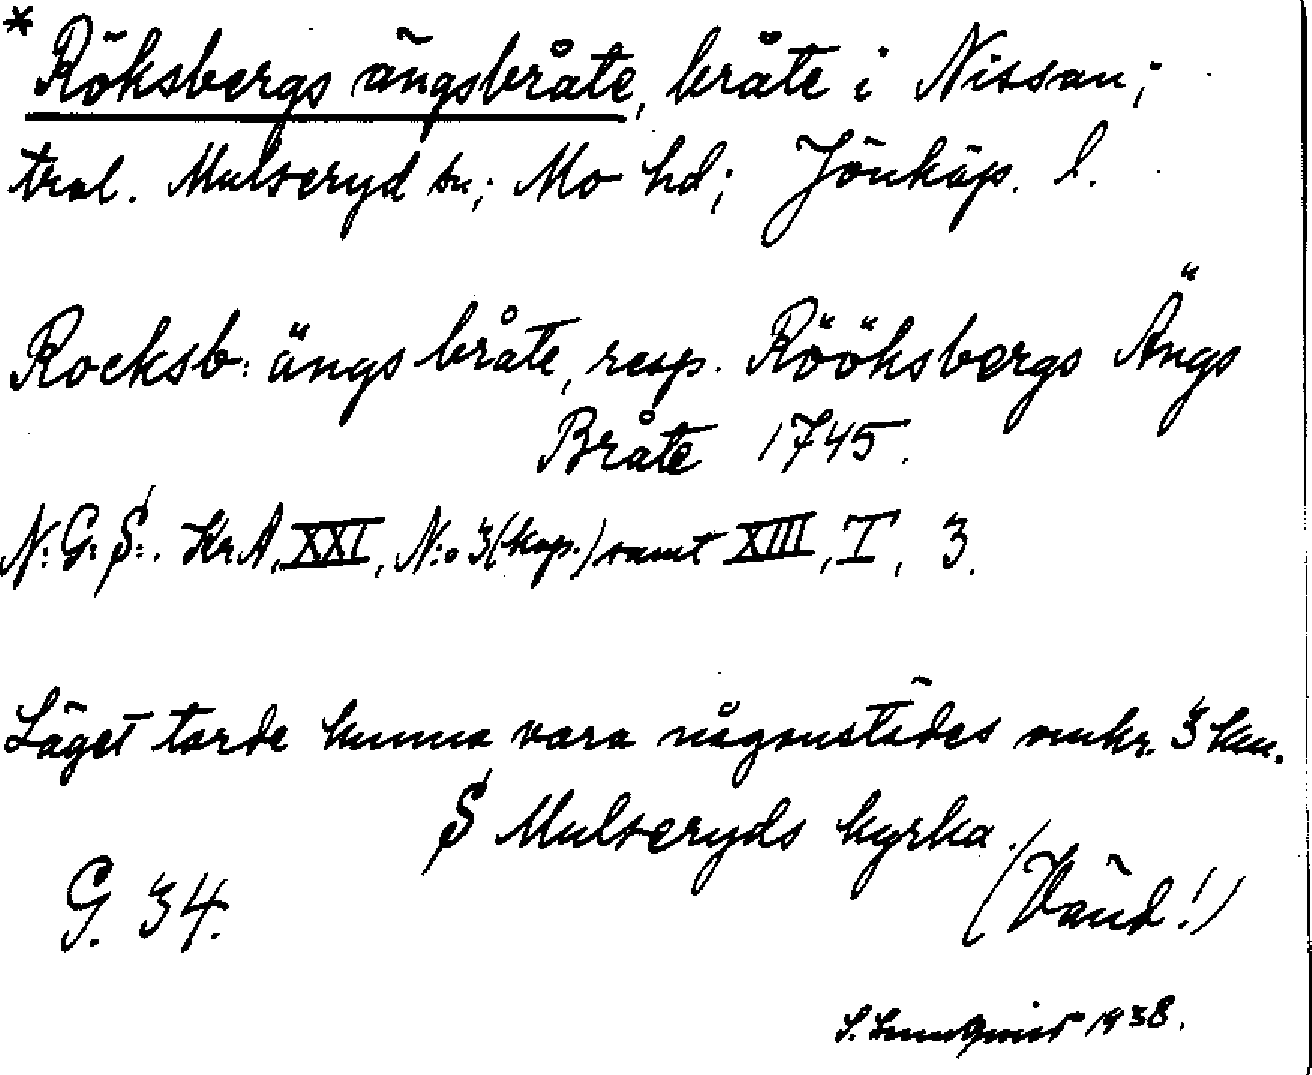 * Röksbergs ängsbråte, bråte i Nissan;
trol. Mulseryd sn; Mo hd; Jönköp. l.
Rocksb: ängs bråte, resp. Rööksbergs Ängs
Bråte 1745.
N: G: S:. Kr.A, XXI, N:o 3 (kop.) samt XIII, I, 3.
Läget torde kunna vara någonstädes omkr. 3 km.
S Mulseryds kyrka.
G. 34.
(Vänd!)
S. Lundqvist 1938.